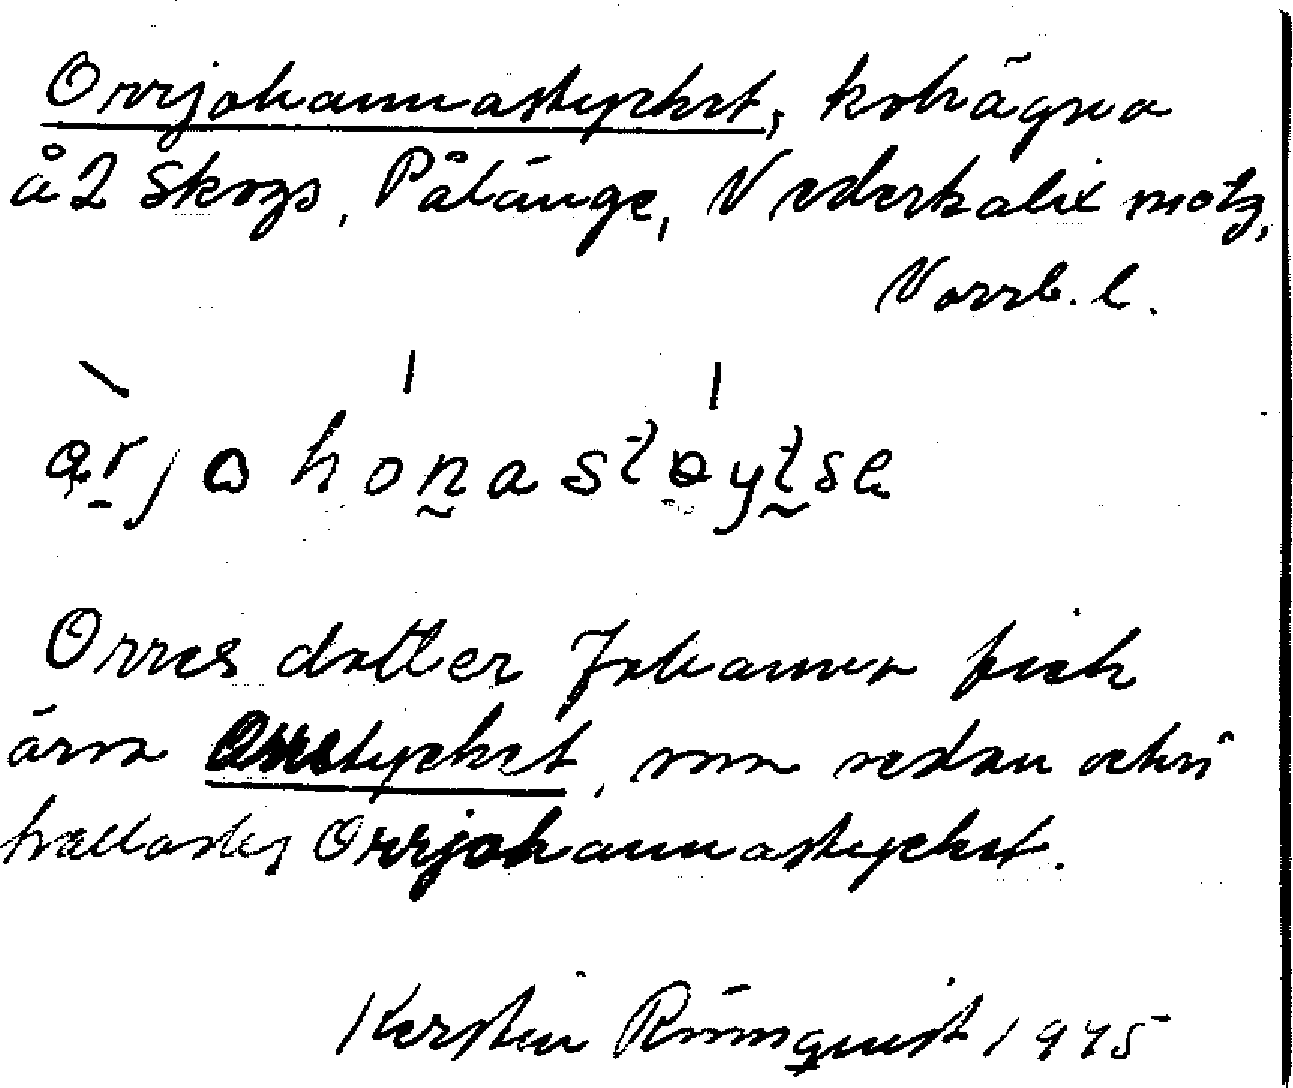 Orrjohannastycket, kohägna
å 2 Skogs, Pålänge, Nederkalix sotg,
Norrb. l.
Orres dotter Johanna fick
ärva Orrstycket, som sedan också
kallades Orrjohannastycket.
Kerstin Römquist 1975